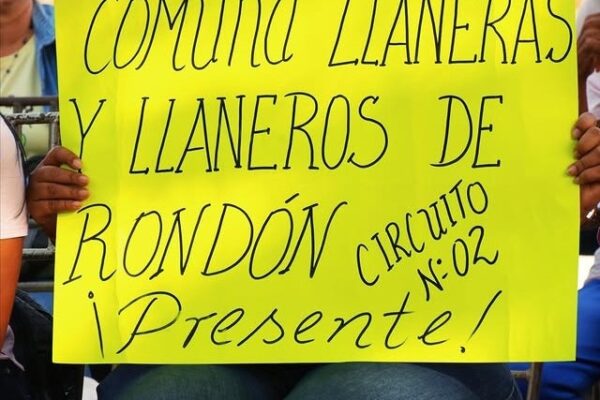 COMUNA LLANERAS
Y LLANEROS DE
RONDÓN CIRCUITO
Nº: 02
¡Presente!